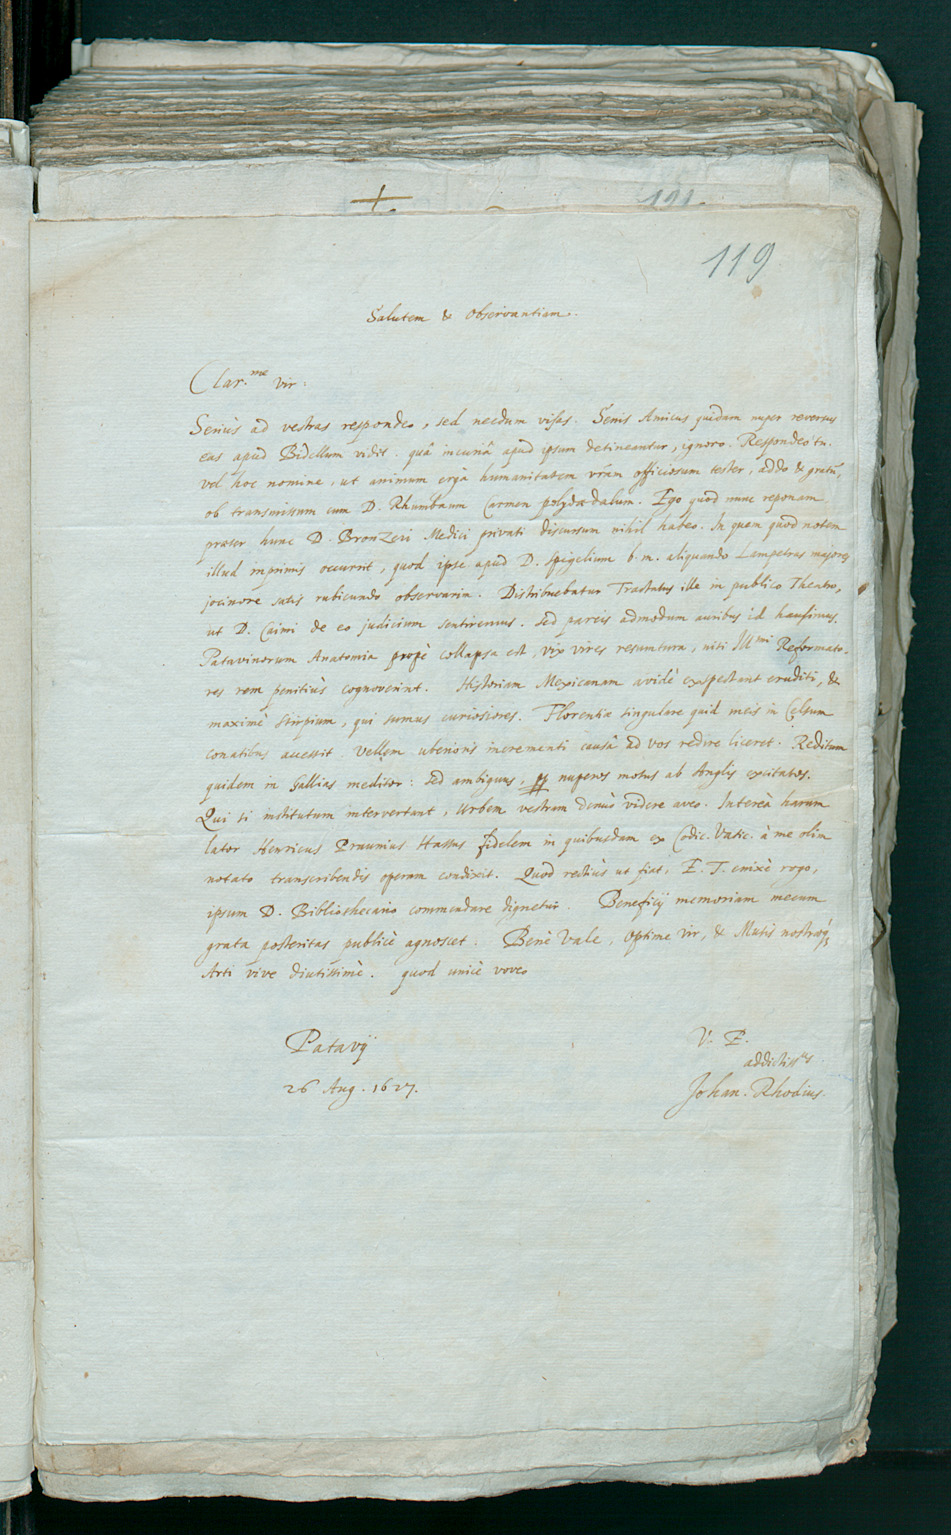 119
Salutem & Observantiam.
Clar.me Vir:
Seriùs ad vestras respondeo, sed necdum visas. Senis Amicus quidam nuper reversus
eas apud Bidellum vidit. quâ incuriâ apud ipsum detineantur, ignoro. Respondeo tn.
vel hoc nomine, ut animum ergà humanitatem vr̃am officiosum tester, addo & gratũ,
ob transmissum cum D. Rhumbaum Carmen polydædalum. Ego quod nunc reponam
præter hunc D. Bronzeri Medici privati discursum nihil habeo. In quem quod notem
illud inprimis occurrit, quod ipse apud D. Spigelium b. m. aliquando Lampetras majores
jecinore satis rubicundo observarim. Distribuebatur Tractatus ille in publico Theatro,
ut D. Caimi de eo judicium sentiremus. Sed parcis admodum auribus id hausimus.
Patavinorum Anatomia propè collapsa est, vix vires resumtura, niti Ill.mi Reformato-
res rem penitiùs cognoverint. Historiam Mexicanam avidè exspectant eruditi, &
maximè Stirpium, qui sumus curiosiores. Florentiæ singulare quid meis in Celsum
conatibus accessit. Vellem uberioris incrementi causâ ad vos redire liceret. Reditum
quidem in Gallias meditor: sed ambiguus, nuperos motus ab Anglis excitatos.
Qui si institutum intervertant, Urbem vestram denuò videre aveo. Intereà harum
lator Henricus Praunius Hassus fidelem in quibusdam ex Codic. Vatic. à me olim
notato transcribendis operam condixit. Quod rectiùs ut fiat, E. T. enixè rogo,
ipsum D. Bibliothecario commendare dignetur. Beneficij memoriam mecum
grata posteritas publicè agnoscet. Benè Vale, Optime Vir, & Musis nostræq;
Arti vive diutissimè. quod unicè voveo
Patavij
V. E.
addictiss.us
26 Aug. 1627.
Johan. Rhodius.